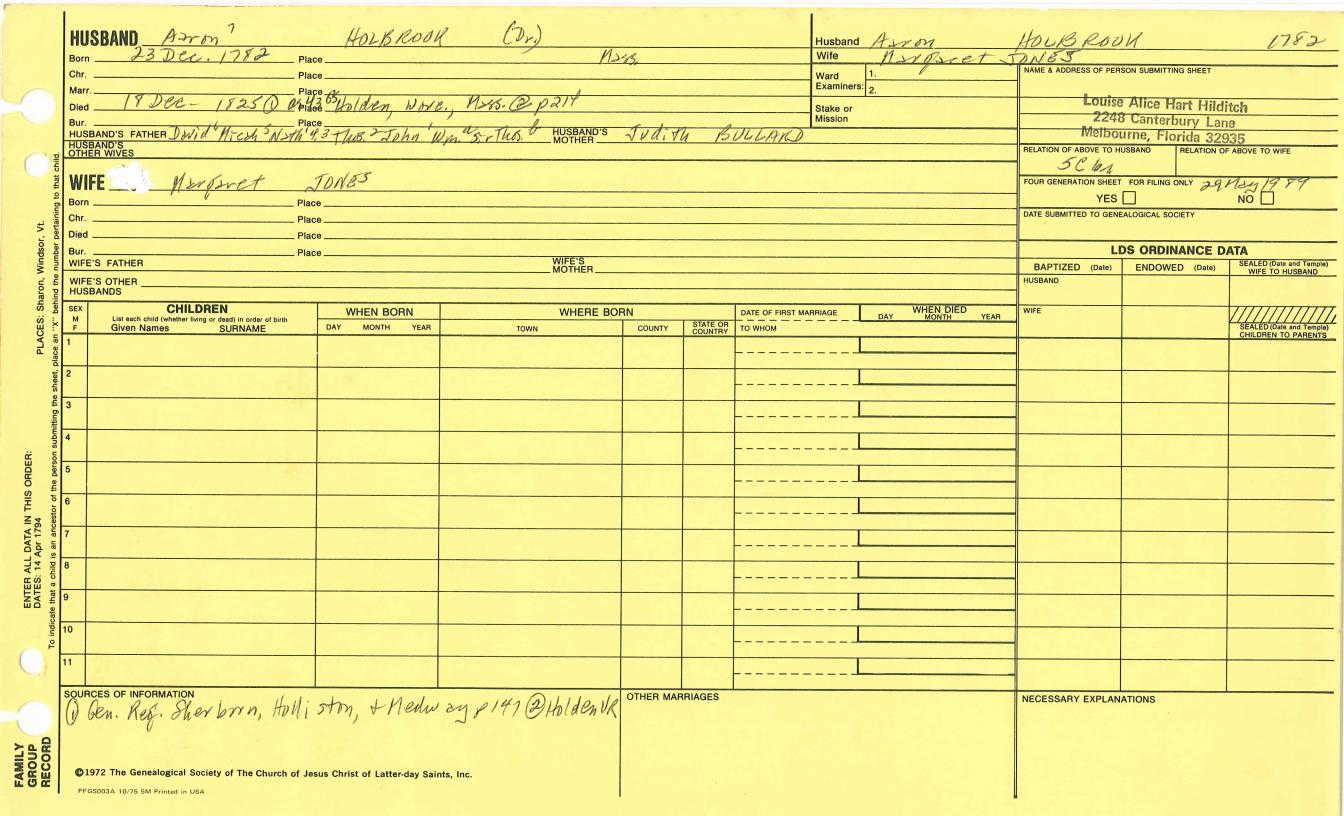 HUSBAND Aaron 7 HOLBROOK (Dr.)
Born 23 Dec. 1782 Place Mass
Chr. Place
Marr. Place
Died 18 Dec- 1825 ① Place Holden, Worc., Mass. ② p214
Bur. Place
HUSBAND'S FATHER David 6 Micah 5 Nath 4,3 Thos. 2 John 1 Wm a Sr. Thos. b HUSBAND'S MOTHER Judith BULLARD
HUSBAND'S OTHER WIVES
WIFE Margaret JONES
Born Place
Chr. Place
Died Place
Bur. Place
WIFE'S FATHER WIFE'S MOTHER
WIFE'S OTHER HUSBANDS
Husband Aaron HOLBROOK 1782
Wife Margaret JONES
Ward Examiners: 1. 2.
Stake or Mission
NAME & ADDRESS OF PERSON SUBMITTING SHEET
Louise Alice Hart Hilditch
2248 Canterbury Lane
Melbourne, Florida 32935
RELATION OF ABOVE TO HUSBAND RELATION OF ABOVE TO WIFE
5C
FOUR GENERATION SHEET FOR FILING ONLY 29 May 1989
YES NO
DATE SUBMITTED TO GENEALOGICAL SOCIETY
LDS ORDINANCE DATA
BAPTIZED (Date) ENDOWED (Date) SEALED (Date and Temple) WIFE TO HUSBAND
HUSBAND
WIFE
SEALED (Date and Temple) CHILDREN TO PARENTS
SEX M F
CHILDREN
List each child (whether living or dead) in order of birth
Given Names SURNAME
WHEN BORN
DAY MONTH YEAR
WHERE BORN
TOWN COUNTY STATE OR COUNTRY
DATE OF FIRST MARRIAGE
TO WHOM
WHEN DIED
DAY MONTH YEAR
1
2
3
4
5
6
7
8
9
10
11
SOURCES OF INFORMATION
① Gen. Reg. Sherborn, Holliston, & Medway p 147 ② Holden VR
OTHER MARRIAGES
NECESSARY EXPLANATIONS
©1972 The Genealogical Society of The Church of Jesus Christ of Latter-day Saints, Inc.
PFGS003A 10/75 5M Printed in USA
FAMILY GROUP RECORD
ENTER ALL DATA IN THIS ORDER:
DATES: 14 Apr 1794 PLACES: Sharon, Windsor, Vt.
To indicate that a child is an ancestor of the person submitting the sheet, place an "X" behind the number pertaining to that child.